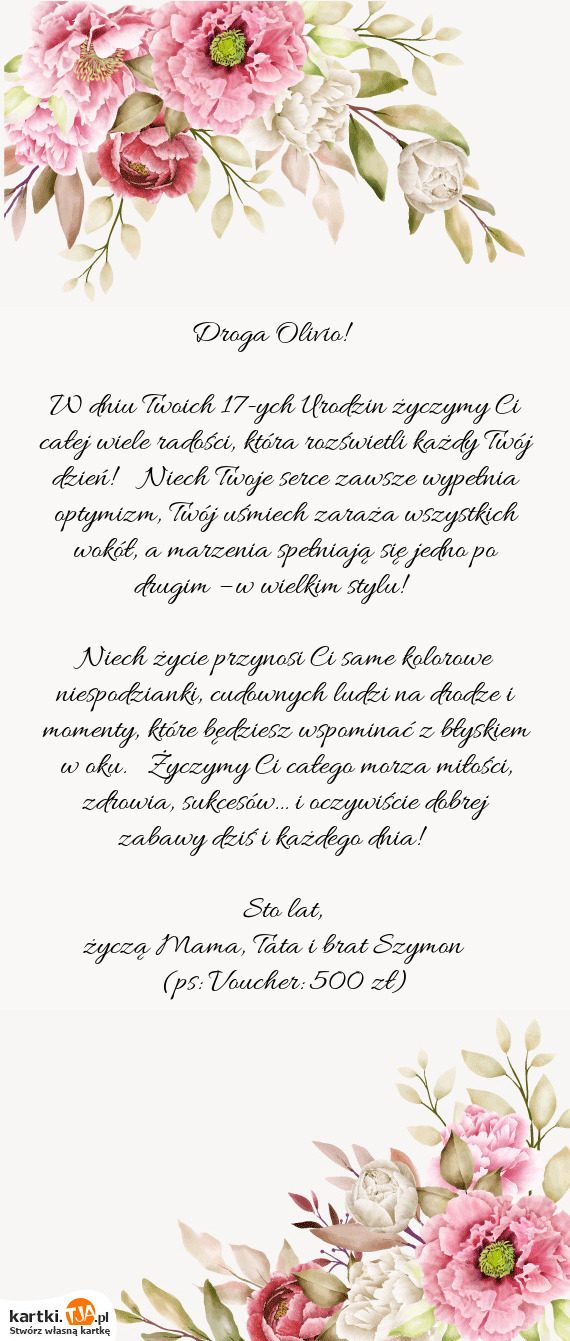 Droga Olivio!
W dniu Twoich 17-ych Urodzin życzymy Ci
całej wiele radości, która rozświetli każdy Twój
dzień! Niech Twoje serce zawsze wypełnia
optymizm, Twój uśmiech zaraża wszystkich
wokół, a marzenia spełniają się jedno po
drugim – w wielkim stylu!
Niech życie przynosi Ci same kolorowe
niespodzianki, cudownych ludzi na drodze i
momenty, które będziesz wspominać z błyskiem
w oku. Życzymy Ci całego morza miłości,
zdrowia, sukcesów... i oczywiście dobrej
zabawy dziś i każdego dnia!
Sto lat,
życzą Mama, Tata i brat Szymon
(ps: Voucher: 500 zł)
kartki.TJA.pl
Stwórz własną kartkę